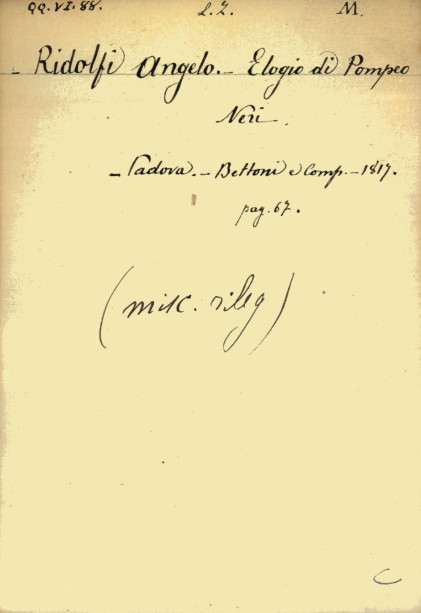 QQ. VI. 88. L. Z. M.
- Ridolfi Angelo. - Elogio di Pompeo
Neri.
- Padova. - Bettoni e Comp. - 1817.
pag. 67.
(misc. rileg)
C